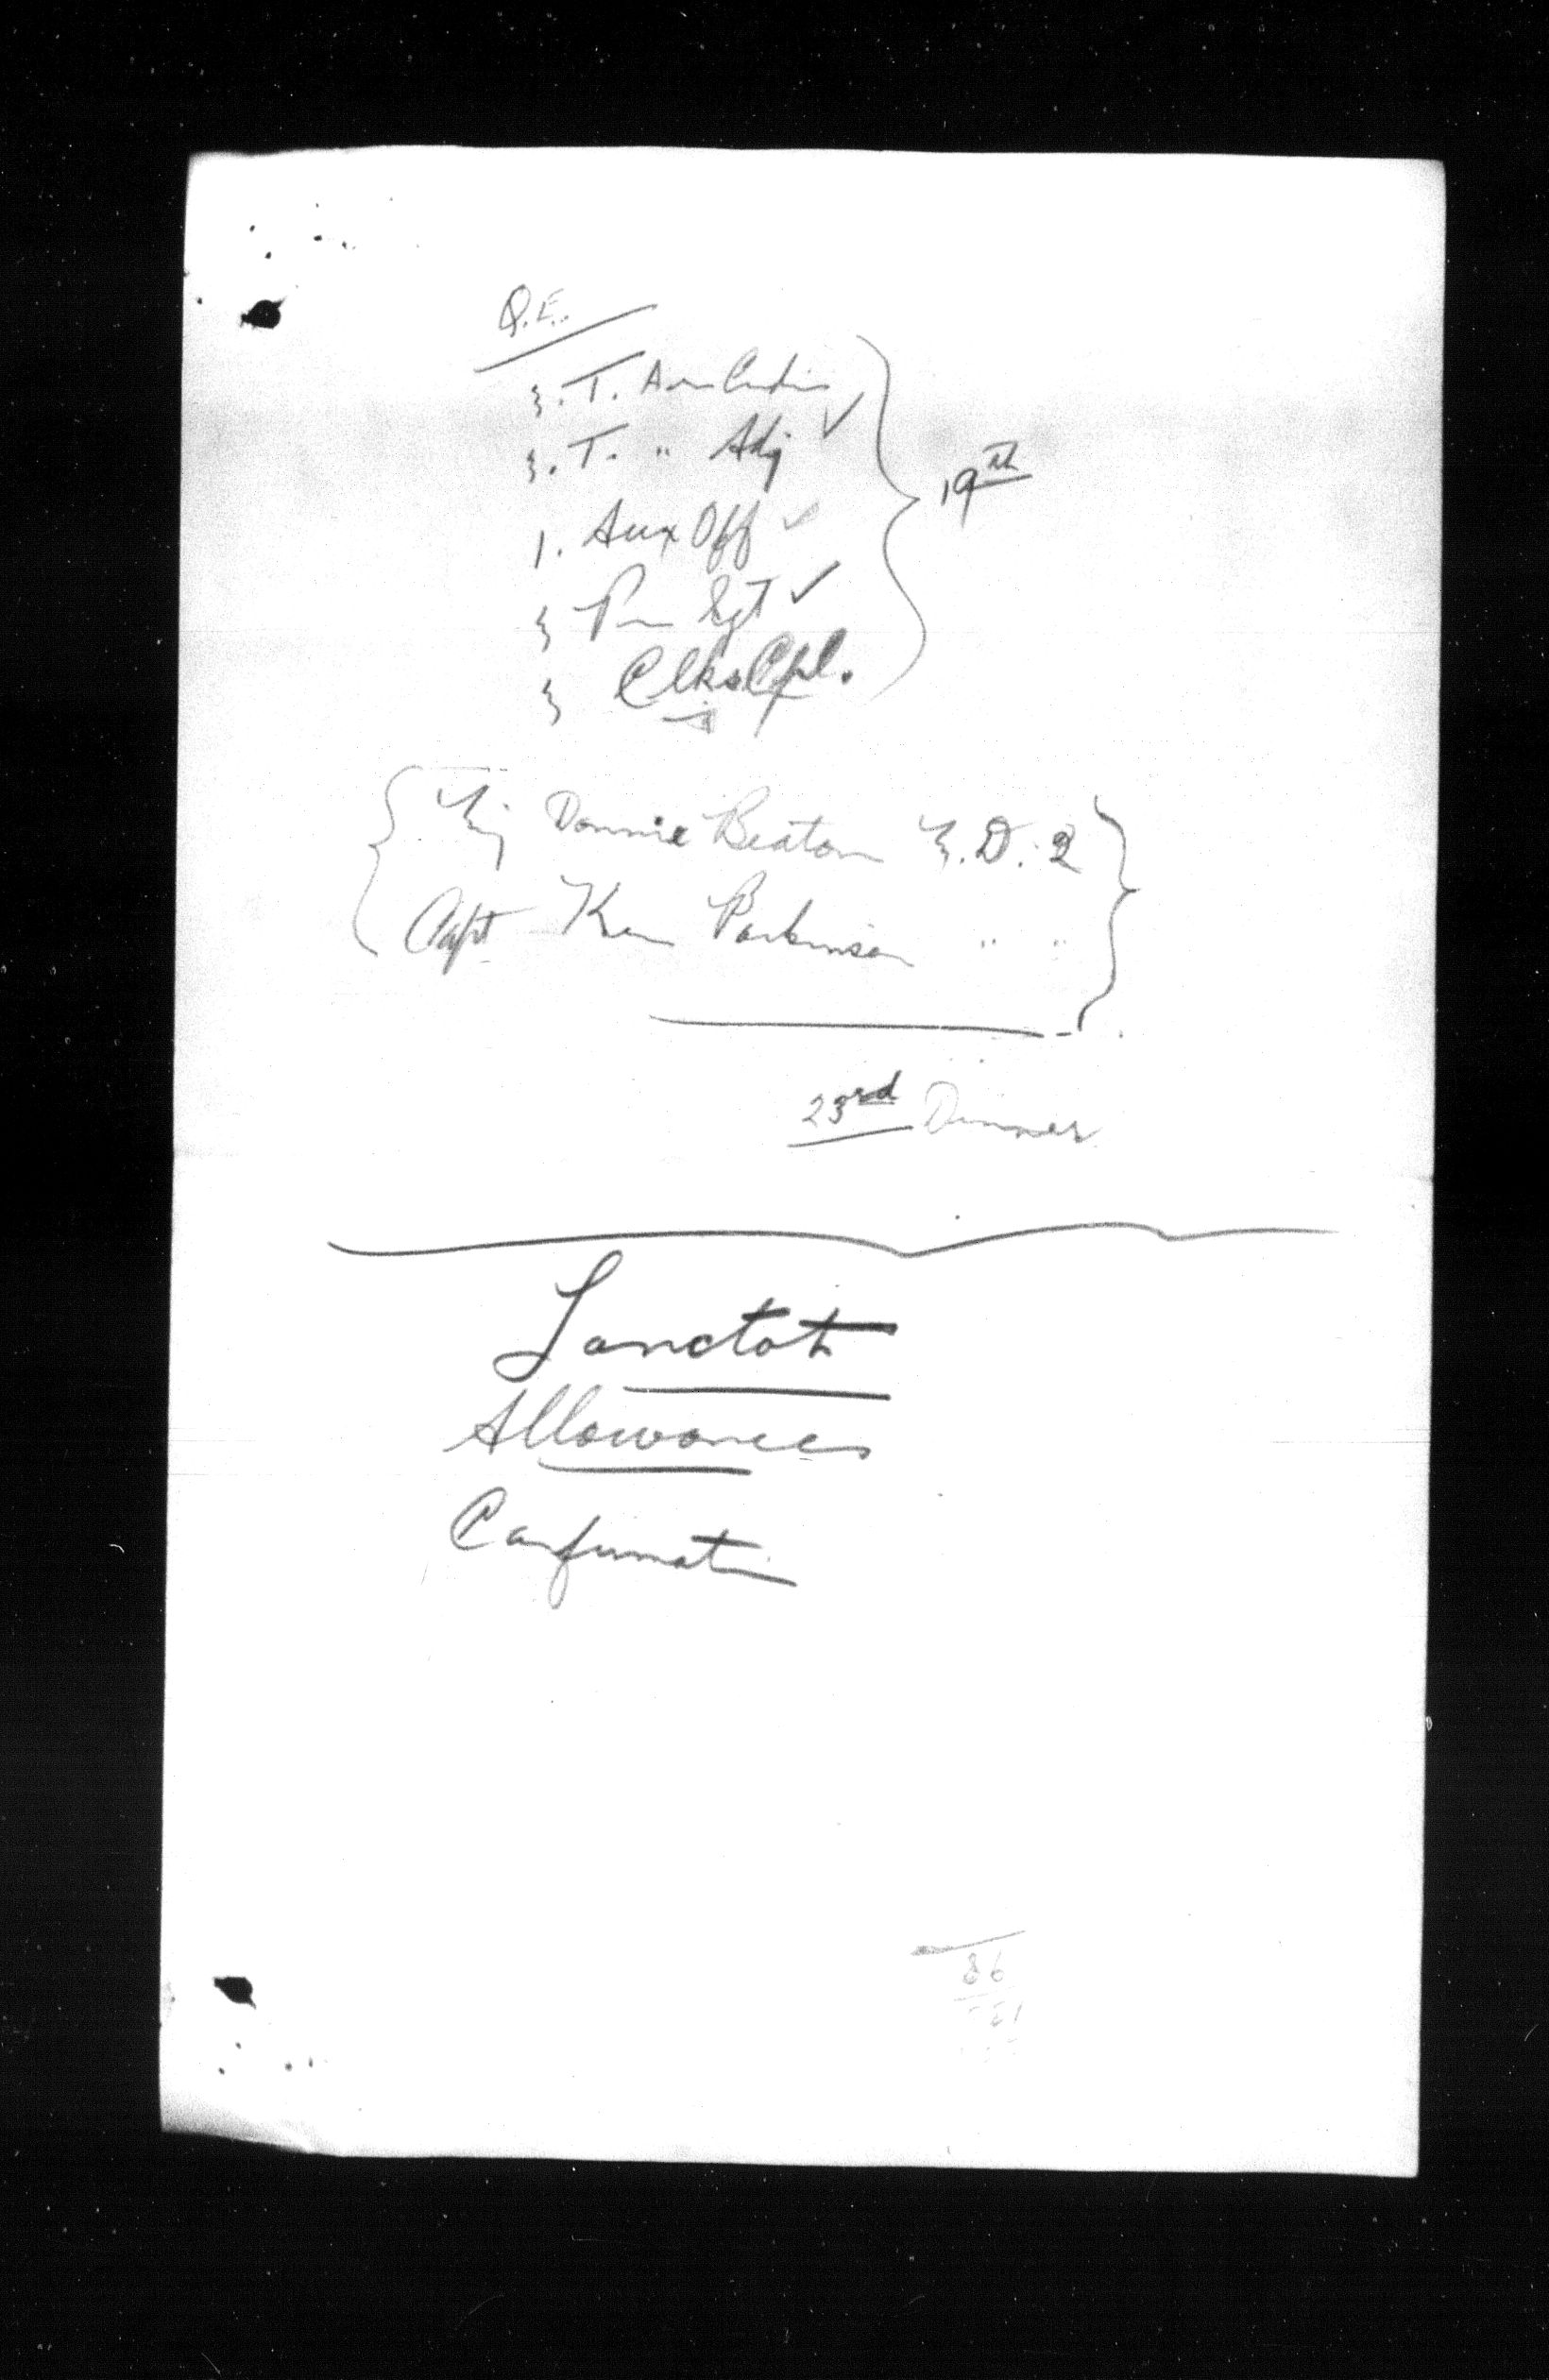 Q.E.
T.
T. " Adj ✓
1. Aux Off ✓
Sgt ✓
Clks Cpl.
19th
Maj Donnie Beaton M.D. 2
Capt Ken Parkinson " "
23rd Dinner
Lanctot
Allowances
Confirmation
86